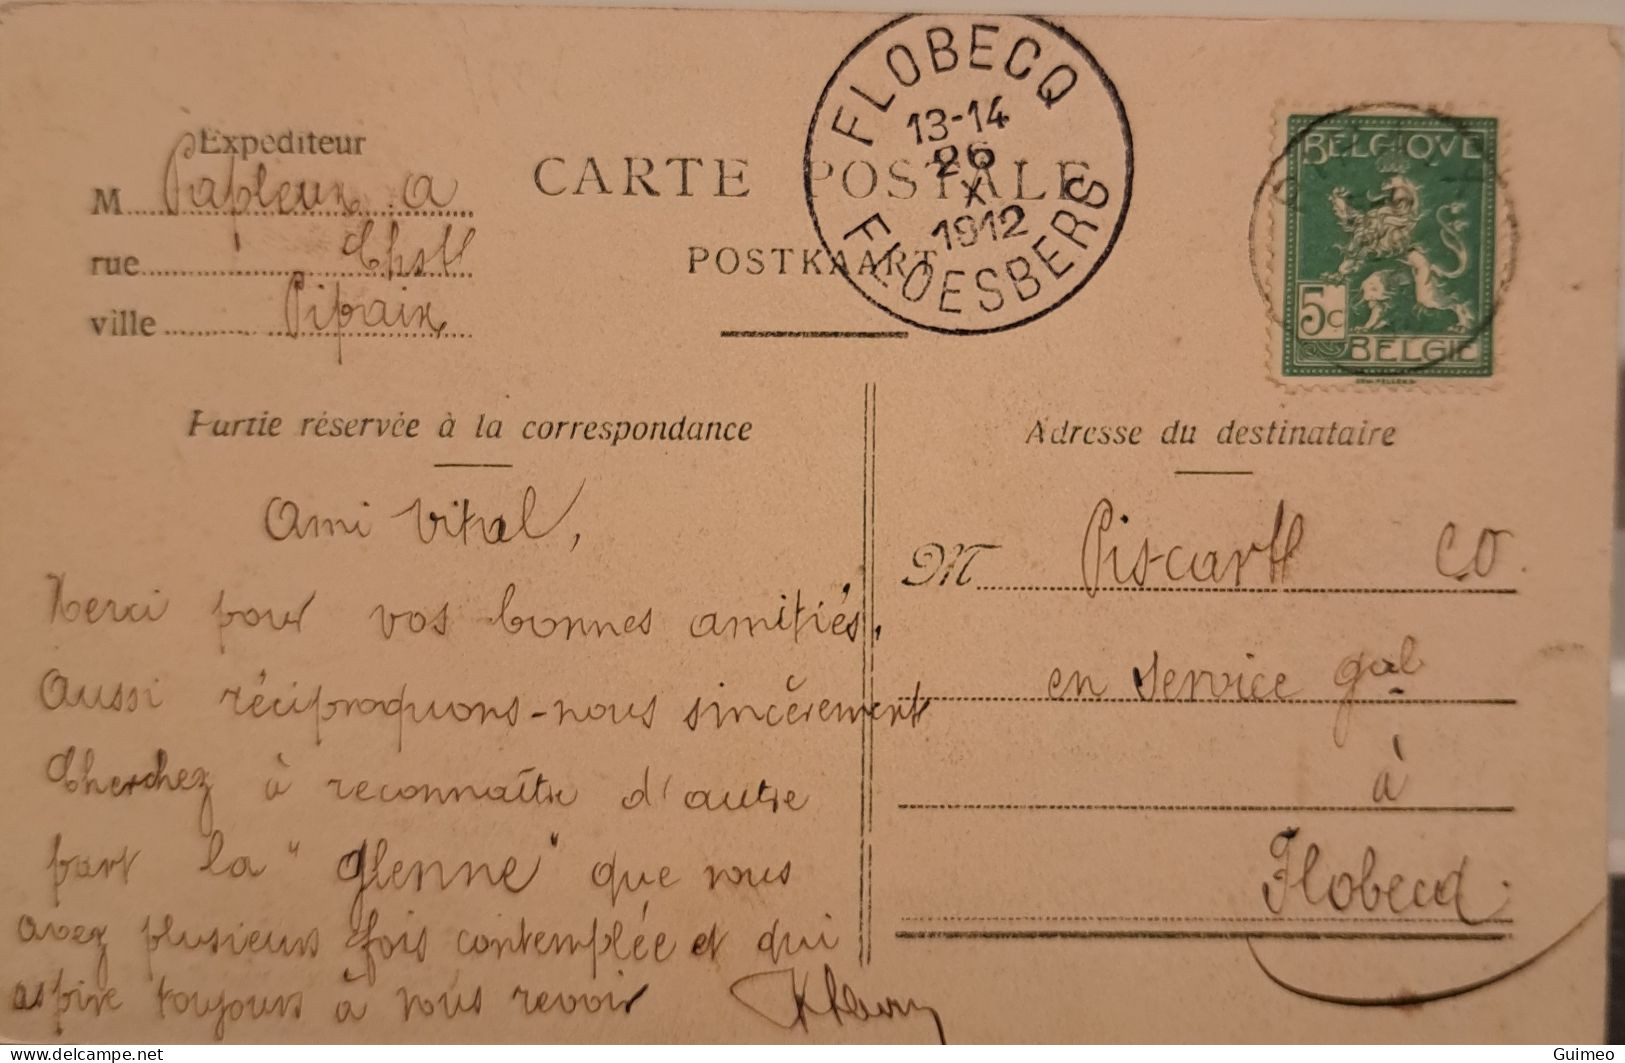 Expéditeur
M Papleux A
rue
ville Pipaix
CARTE POSTALE
POSTKAART
FLOBECQ
13-14
26
X
1912
FLOESBERG
BELGIQUE
5c
BELGIË
Partie réservée à la correspondance
Ami Vital,
Merci pour vos bonnes amitiés,
Aussi réciproquons-nous sincèrement
Cherchez à reconnaître d'autre
part la "Glenne" que vous
avez plusieurs fois contemplée et qui
aspire toujours à vous revoir
Adresse du destinataire
M Piscart
en service gal
à
Flobecq.
Guimeo
delcampe.net